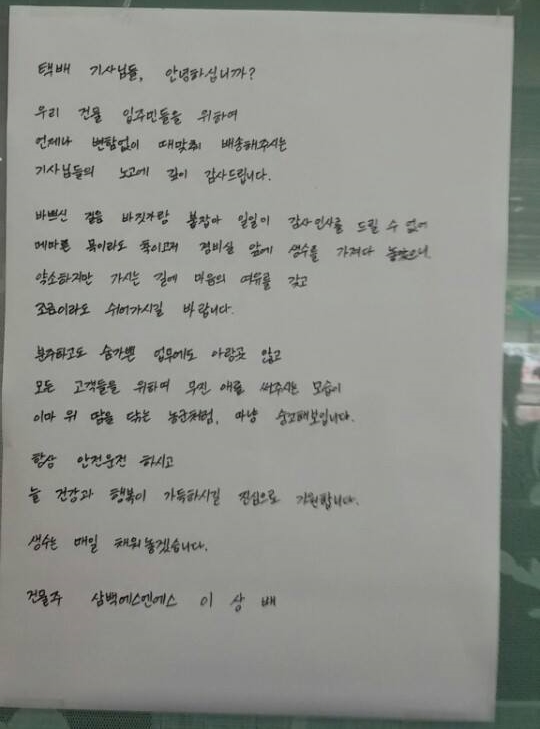 택배 기사님들, 안녕하십니까?
우리 건물 입주민들을 위하여
언제나 변함없이 때맞춰 배송해주시는
기사님들의 노고에 깊이 감사드립니다.
바쁘신 걸음 바짓가랑 붙잡아 일일이 감사인사를 드릴 수 없어
메마른 목이라도 축이고자 경비실 앞에 생수를 가져다 놓았으니
약소하지만 가시는 길에 마음의 여유를 갖고
조금이라도 쉬어가시길 바랍니다.
분주하고도 숨가쁜 업무에도 아랑곳 않고
모든 고객들을 위하여 무진 애를 써주시는 모습이
이마 위 땀을 닦는 농군처럼, 마냥 숭고해보입니다.
항상 안전운전 하시고
늘 건강과 행복이 가득하시길 진심으로 기원합니다.
생수는 매일 채워놓겠습니다.
건물주 삼백에스엔에스 이 상 배